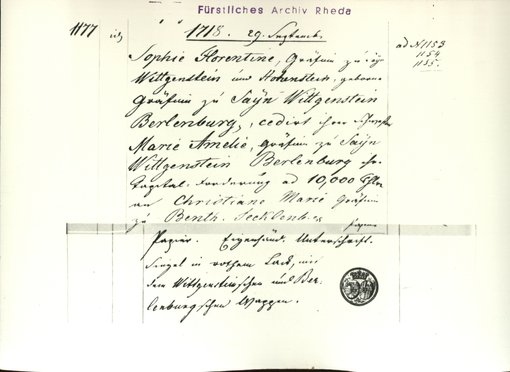 Fürstliches Archiv Rheda
1177 1718. 29. Septemb. ad N 1153
1154
1155.
Sophie Florentine, Gräfin zu Sayn
Wittgenstein und Hohenstein, geborne
Gräfinn zu Sayn Wittgenstein
Berlenburg, cedirt ihrer Schwester
Marie Amelie, Gräfin zu Sayn
Wittgenstein Berlenburg
Capital-Forderung ad 10,000
an Christiane Marie Gräfin
zu Benth. Tecklenb.
Papier. Eigenhänd. Unterschrift.
Siegel in rothem Lack, mit
dem Wittgensteinschen und Ber-
lenburgschen Wappen.